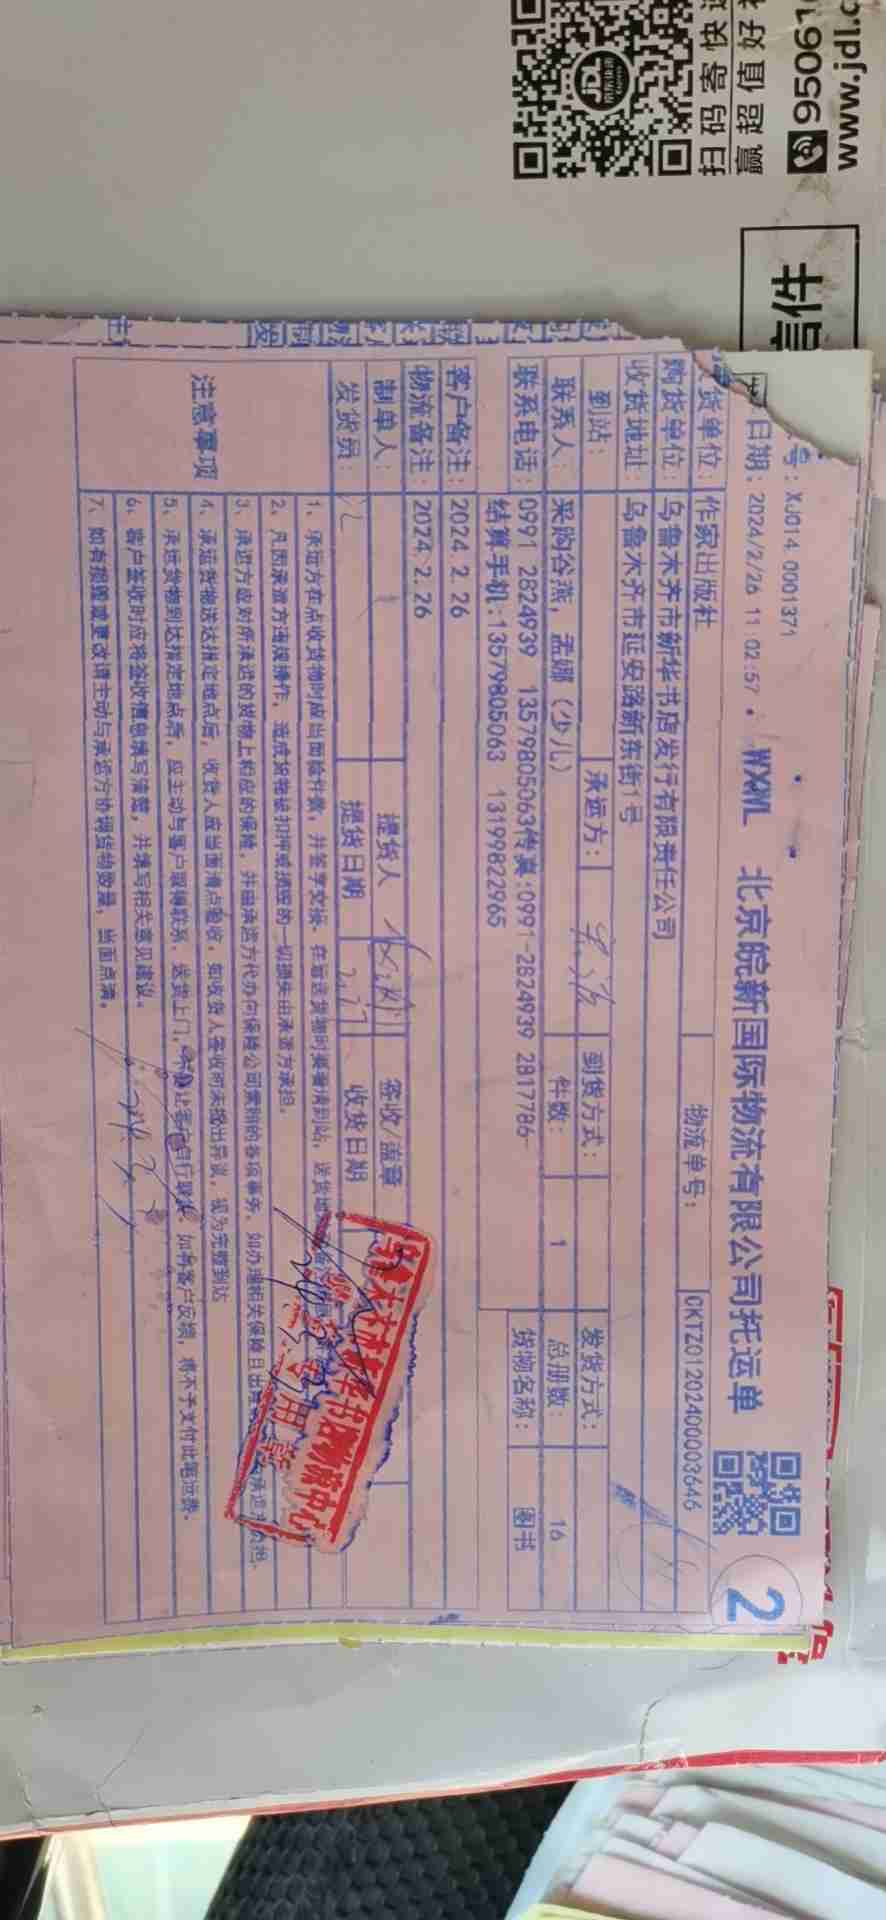 扫码寄快
赢超值好
95061
www.jdl.c
JDL
信件
号：XJ014 0001371
日期：2024/2/26 11:02:57
WXWL 北京皖新国际物流有限公司托运单
2
货单位：作家出版社 物流单号：CKTZ01202400003646
购货单位：乌鲁木齐市新华书店发行有限责任公司
收货地址：乌鲁木齐市延安路新东街1号
到站： 承运方： 到货方式： 发货方式：
联系人：采购谷燕，孟娜（少儿） 件数：1 总册数：16
联系电话：0991 2824939 13579805063传真：0991-2824939 2817786 货物名称：图书
结算手机：13579805063 13199822965
客户备注：2024.2.26
物流备注：2024.2.26
制单人： 提货人 签收/盖章
发货员： 提货日期 2.27 收货日期
注意事项
1、承运方在点收货物时应当面验件数，并签字交接。在运送货物时要看清到站，送货地
2、凡因承运方违规操作，造成货物被扣押或损毁的一切损失由承运方承担。
3、承运方应对所承运的货物上相应的保险，并由承运方代办向保险公司索赔的各项事务。如办理相关保险日出
4、承运货物送达指定地点后，收货人应当面清点验收，如收货人签收时未提出异议，视为完整到达
5、承运货物到达指定地点后，应主动与客户取得联系，送货上门，不要让客户自行取货。如有客户反馈，将不予支付此笔运费。
6、客户签收时应将签收信息填写清楚，并填写相关意见建议。
7、如有损毁或更改请主动与承运方协调货物数量，当面点清。